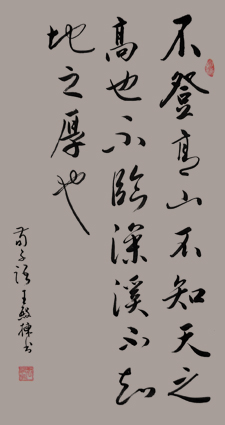 不登高山不知天之
高也不临深溪不知
地之厚也
荀子语王